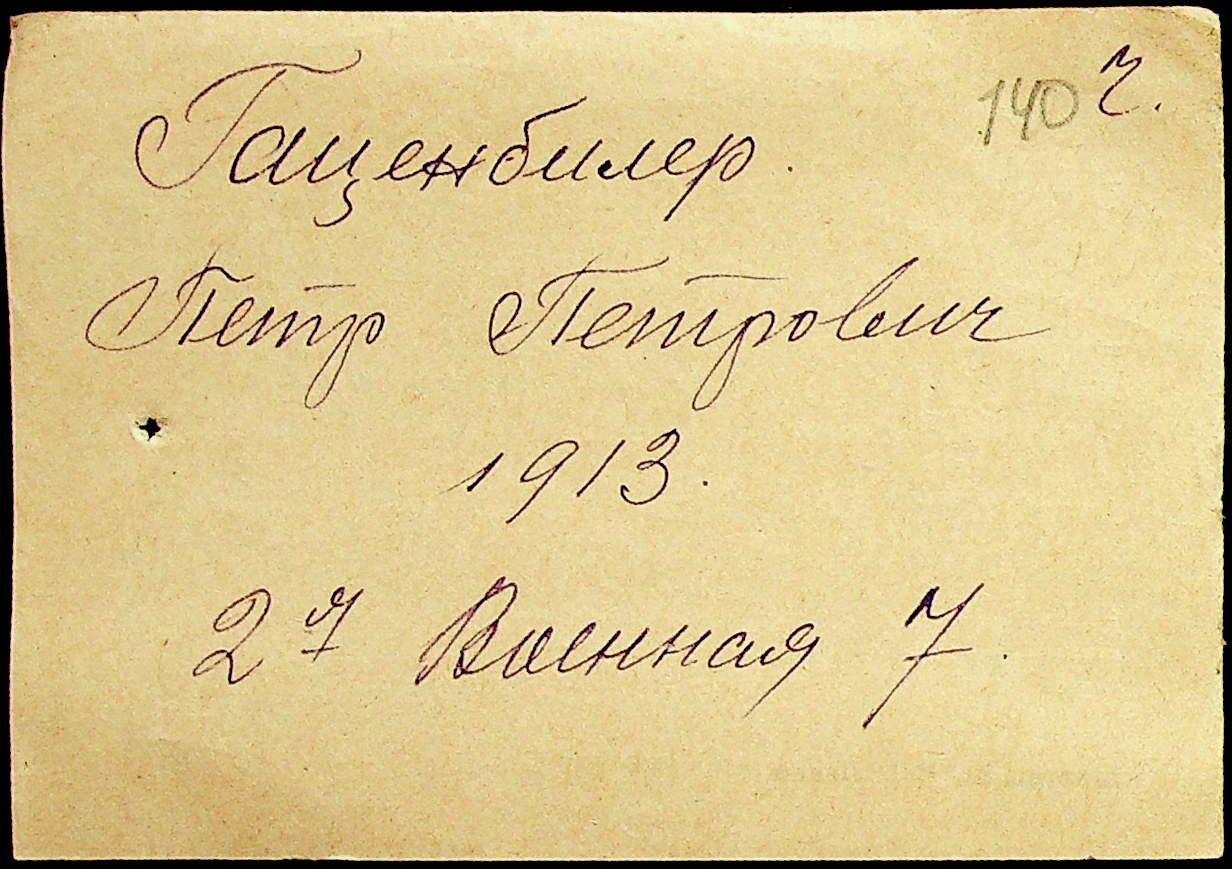 140 ч.
Гаценбилер.
Петр Петрович
1913.
2я Военная 7.